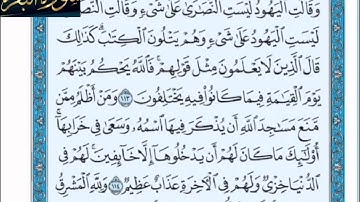 وَقَالَتِ الْيَهُودُ لَيْسَتِ النَّصَارَىٰ عَلَىٰ شَيْءٍ وَقَالَتِ النَّصَارَىٰ
لَيْسَتِ الْيَهُودُ عَلَىٰ شَيْءٍ وَهُمْ يَتْلُونَ الْكِتَابَ ۗ كَذَٰلِكَ
قَالَ الَّذِينَ لَا يَعْلَمُونَ مِثْلَ قَوْلِهِمْ ۚ فَاللَّهُ يَحْكُمُ بَيْنَهُمْ
يَوْمَ الْقِيَامَةِ فِيمَا كَانُوا فِيهِ يَخْتَلِفُونَ ١١٣ وَمَنْ أَظْلَمُ مِمَّن
مَّنَعَ مَسَاجِدَ اللَّهِ أَن يُذْكَرَ فِيهَا اسْمُهُ وَسَعَىٰ فِي خَرَابِهَا ۚ
أُولَٰئِكَ مَا كَانَ لَهُمْ أَن يَدْخُلُوهَا إِلَّا خَائِفِينَ ۚ لَهُمْ فِي
الدُّنْيَا خِزْيٌ وَلَهُمْ فِي الْآخِرَةِ عَذَابٌ عَظِيمٌ ١١٤ وَلِلَّهِ الْمَشْرِقُ